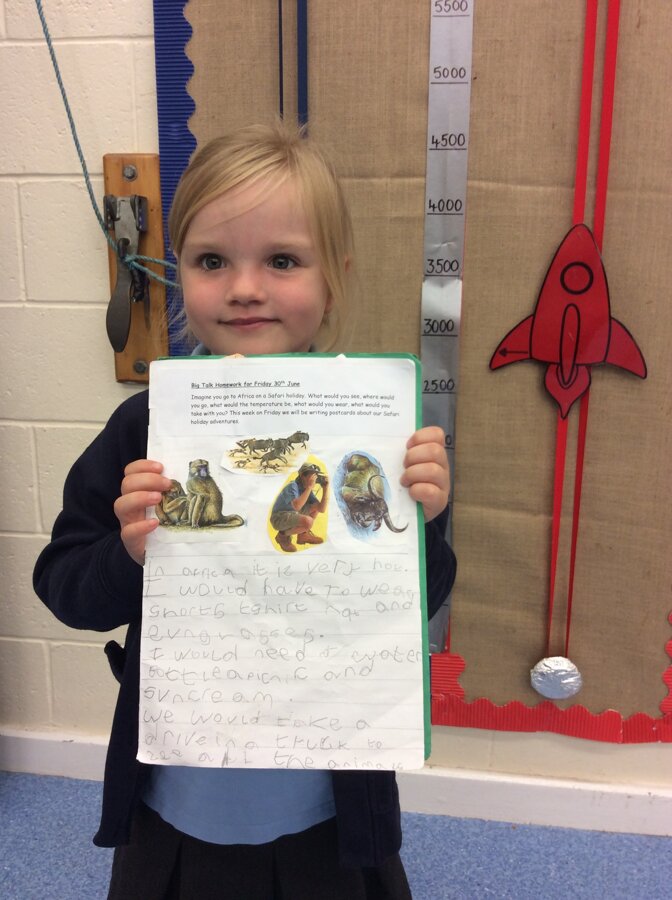 5500
5000
4500
4000
3500
3000
2500
Big Talk Homework for Friday 30th June
Imagine you go to Africa on a Safari holiday. What would you see, where would
you go, what would the temperature be, what would you wear, what would you
take with you? This week on Friday we will be writing postcards about our Safari
holiday adventures.
In africa it is very hot.
I would have to wear
shorts tshirt hat and
sunglasses.
I would need a water
bottle a picnic and
suncream.
We would take a
drive in a truck to
see all the animals